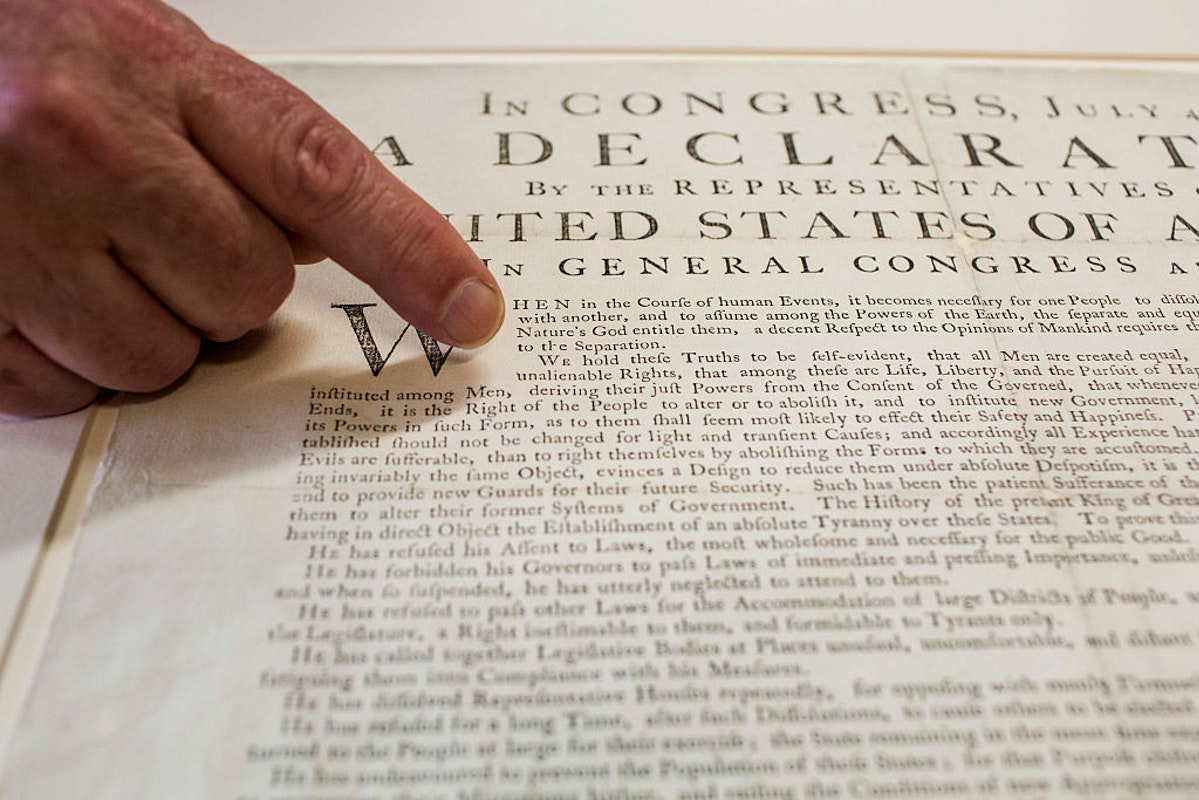 In CONGRESS, July 4
A DECLARAT
By the REPRESENTATIVES
ITED STATES OF A
In GENERAL CONGRESS
WHEN in the Courſe of human Events, it becomes neceſſary for one People to diſſol
with another, and to aſſume among the Powers of the Earth, the ſeparate and equ
Nature's God entitle them, a decent Reſpect to the Opinions of Mankind requires th
to the Separation.
We hold theſe Truths to be ſelf-evident, that all Men are created equal,
unalienable Rights, that among theſe are Life, Liberty, and the Purſuit of Hap
inſtituted among Men, deriving their juſt Powers from the Conſent of the Governed, that whenever
Ends, it is the Right of the People to alter or to aboliſh it, and to inſtitute new Government, l
its Powers in ſuch Form, as to them ſhall ſeem moſt likely to effect their Safety and Happineſs. P
tabliſhed ſhould not be changed for light and tranſient Cauſes; and accordingly all Experience hat
Evils are ſufferable, than to right themſelves by aboliſhing the Forms to which they are accuſtomed.
ing invariably the ſame Object, evinces a Deſign to reduce them under abſolute Deſpotiſm, it is th
and to provide new Guards for their future Security. Such has been the patient Sufferance of th
them to alter their former Syſtems of Government. The Hiſtory of the preſent King of Grea
having in direct Object the Eſtabliſhment of an abſolute Tyranny over theſe States. To prove this
He has refuſed his Aſſent to Laws, the moſt wholeſome and neceſſary for the public Good.
He has forbidden his Governors to paſs Laws of immediate and preſſing Importance, unleſ
and when ſo ſuſpended, he has utterly neglected to attend to them.
He has refuſed to paſs other Laws for the Accommodation of large Diſtricts of People,
the Legiſlature, a Right ineſtimable to them, and formidable to Tyrants only.
He has called together Legiſlative Bodies at Places unuſual, uncomfortable, and diſtant
fatiguing them into Compliance with his Meaſures.
He has diſſolved Repreſentative Houſes repeatedly, for oppoſing with manly Firmneſ
He has refuſed for a long Time, after ſuch Diſſolutions, to cauſe others to be elected
turned to the People at large for their exerciſe; the State remaining in the mean time
He has endeavoured to prevent the Population of theſe States; for that Purpoſe